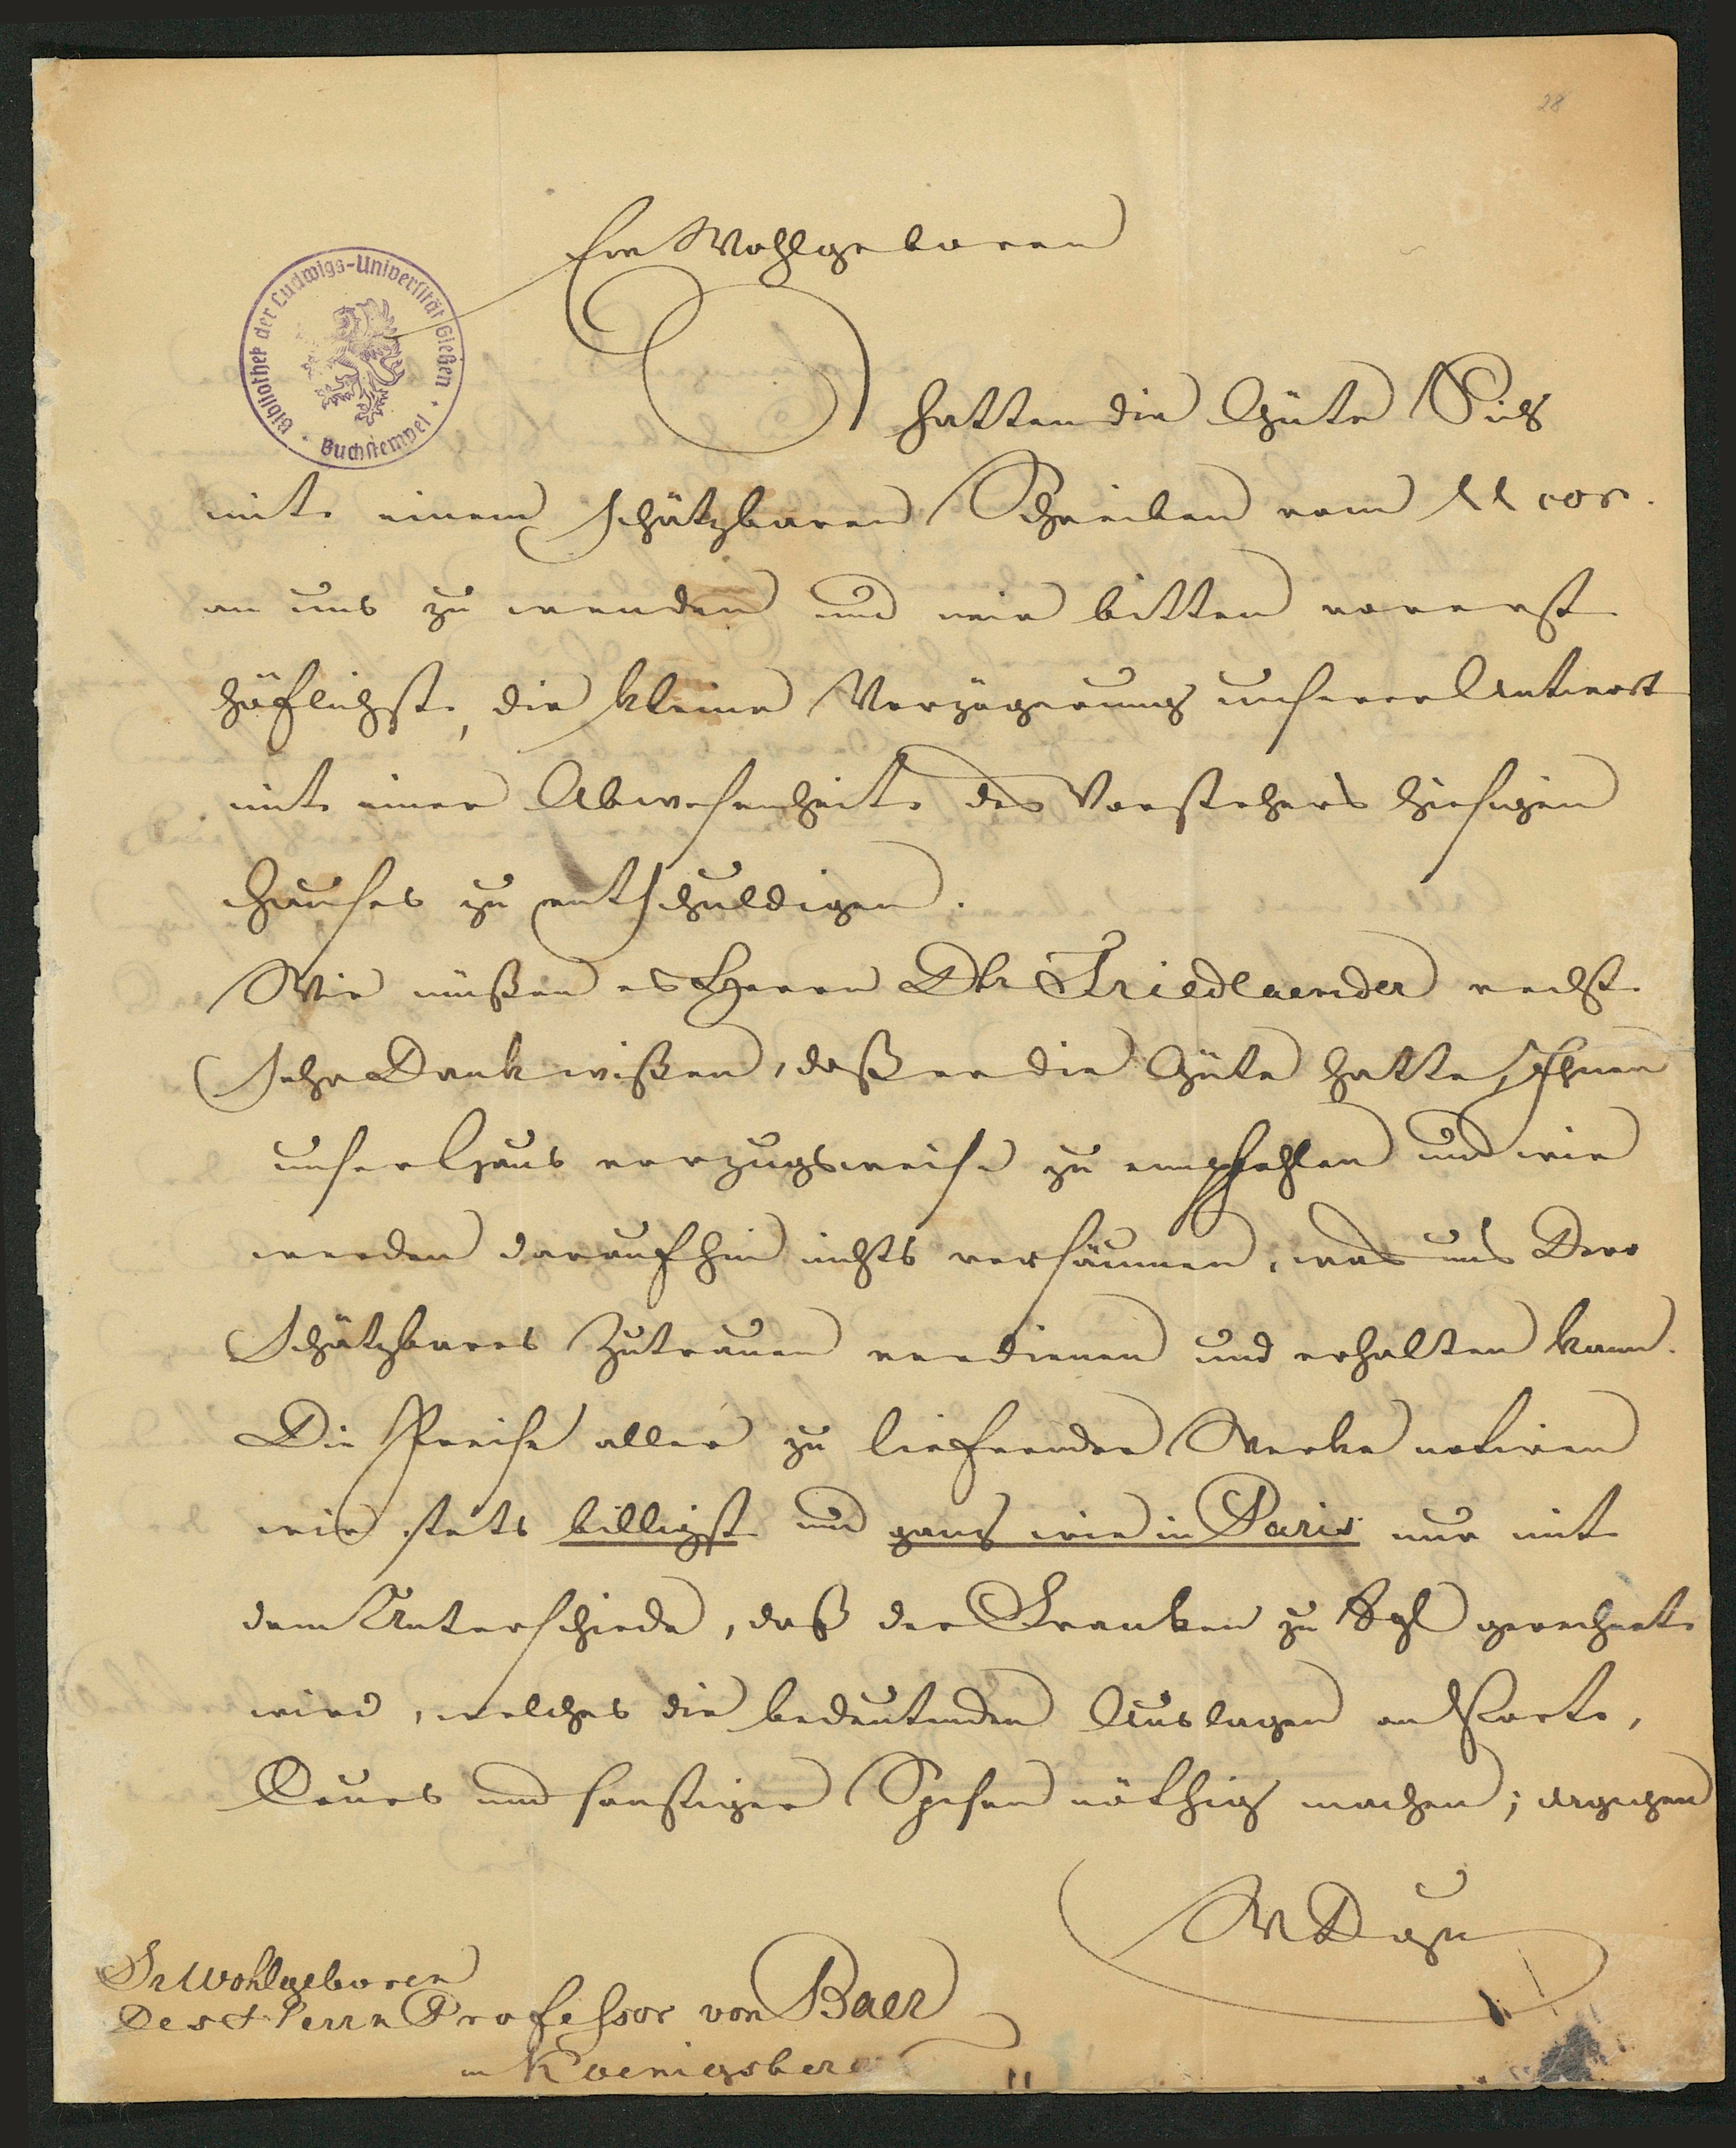 28
Bibliothek der Ludwigs-Universität Gießen · Buchstempel ·
Ew Wohlgeboren
hatten die Güte Sich
mit einem schätzbaren Schreiben vom 11 cor.
an uns zu wenden und wir bitten vorerst
höflichst, die kleine Verzögerung unserer Antwort
mit einer Abwesenheit des Vorstehers hiesigen
Hauses zu entschuldigen.
Wir müßen es Herrn Dr Friedlaender recht
sehr Dank wißen, daß er die Güte hatte, Ihnen
unser Haus vorzugsweise zu empfehlen und wir
werden darauf hin nichts versäumen, was uns Dero
schätzbares Zutrauen verdienen und erhalten kann.
Die Preise aller zu liefernden Werke notiren
wir stets billigst und ganz wie in Paris nur mit
dem Unterschiede, daß der Franken zu gerechnet
wird, welches die bedeutenden Auslagen an Porto,
und sonstiger Spesen nöthig machen; dagegen
Sr Wohlgeboren
Des Herrn Professor von Baer
in Koenigsberg